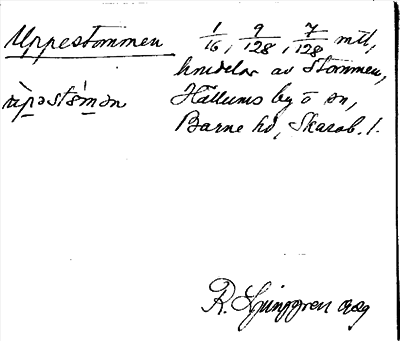 Uppestommen 1/16, 9/128, 7/128 mtl,
hmdelar av Stommen,
Hällums by o sn,
Barne hd, Skarab. l.
R. Ljunggren